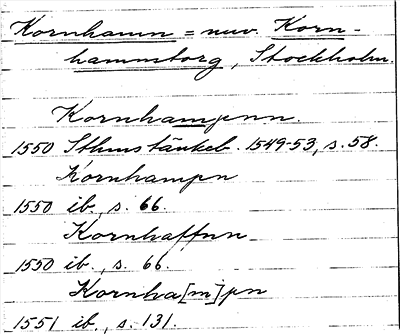 Kornhamn = nuv. Korn-
hammstorg, Stockholm.
Kornhampnn.
1550 Sthms tänkeb. 1549-53, s. 58.
Kornhampn
1550 ib., s. 66.
Kornhaffnn
1550 ib., s. 66.
Kornha[m]pn
1551 ib., s. 131.